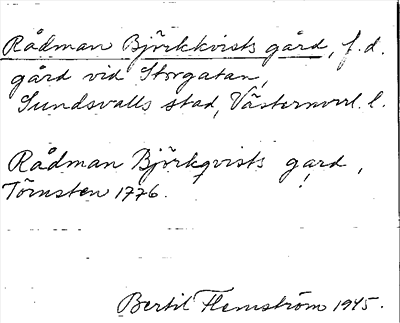 Rådman Björkkvists gård, f.d.
gård vid Storgatan,
Sundsvalls stad, Västernorrl. l.
Rådman Björkqvists gard,
Törnsten 1776.
Bertil Flemström 1945.